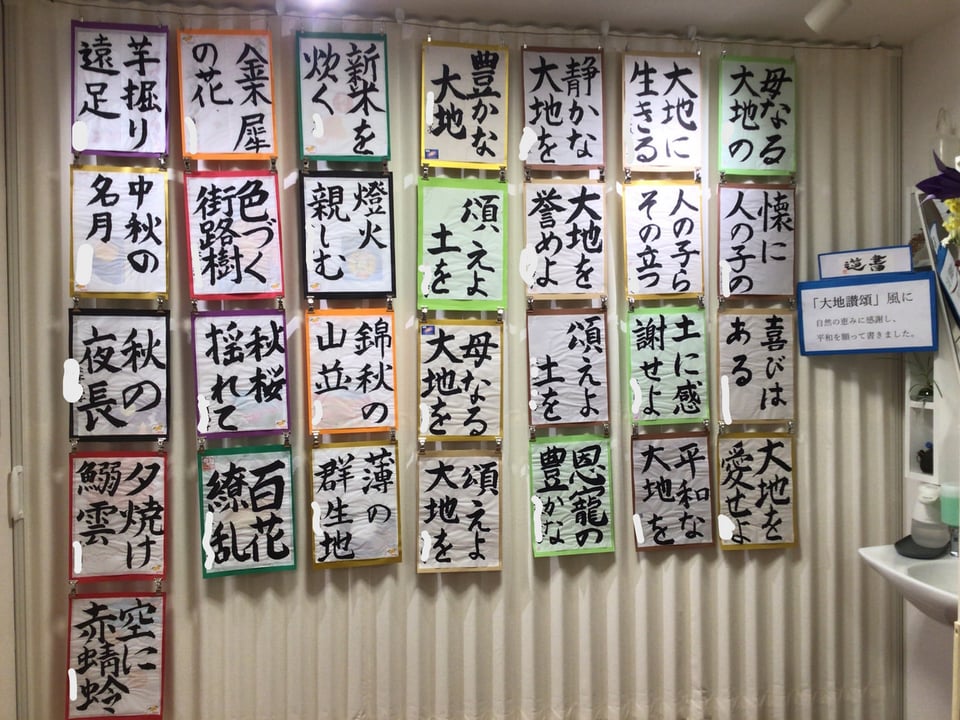 書道
「大地讃頌」風に
自然の恵みに感謝し、
平和を願って書きました。
母なる
大地の
懐に
人の子の
喜びは
ある
大地を
愛せよ
大地に
生きる
人の子ら
その立つ
土に感
謝せよ
平和な
大地を
静かな
大地を
大地を
誉めよ
頌えよ
土を
恩籠の
豊かな
豊かな
大地
頌えよ
土を
母なる
大地を
頌えよ
大地を
新米を
炊く
燈火
親しむ
錦秋の
山並
薄の
群生地
金木犀
の花
色づく
街路樹
秋桜
揺れて
百花
繚乱
芋掘り
遠足
中秋の
名月
秋の
夜長
夕焼け
鰯雲
空に
赤蜻蛉